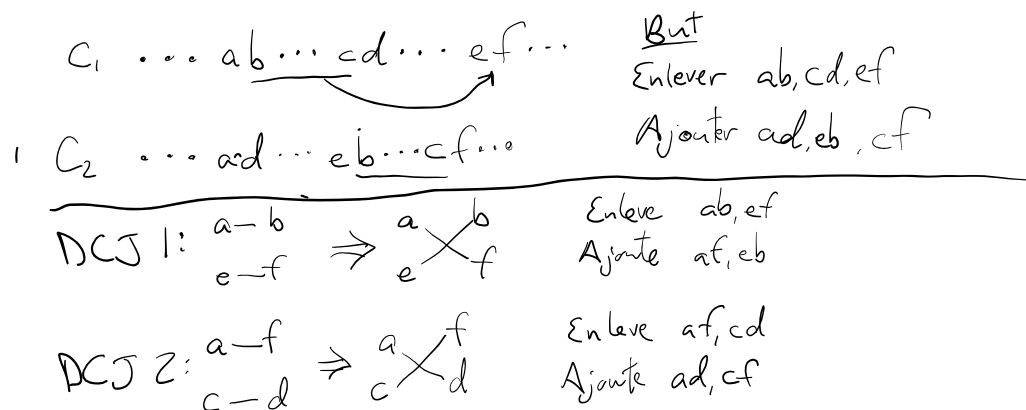 C₁ ... ab ... cd ... ef ...
But
Enlever ab, cd, ef
Ajouter ad, eb, cf
C₂ ... ad ... eb ... cf ...
DCJ 1: a — b ⇒ a b Enleve ab, ef
e — f e f Ajoute af, eb
DCJ 2: a — f ⇒ a f Enleve af, cd
c — d c d Ajoute ad, cf